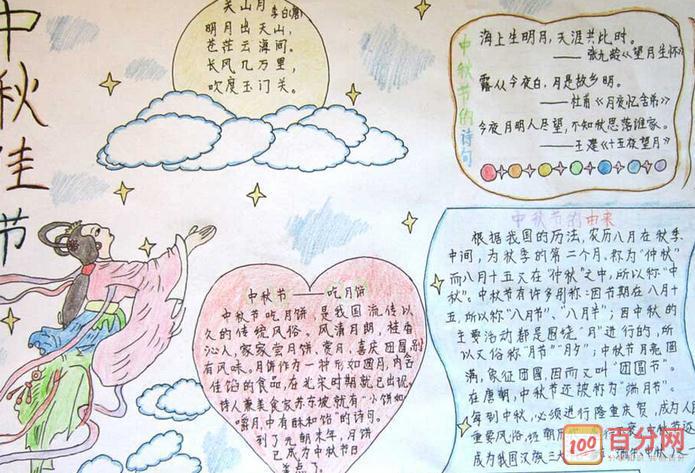 中秋佳节
关山月 李白(唐)
明月出天山，
苍茫云海间。
长风几万里，
吹度玉门关。
中秋节的诗句
海上生明月，天涯共此时。
——张九龄《望月怀
露从今夜白，月是故乡明。
——杜甫《月夜忆舍弟》
今夜月明人尽望，不知秋思落谁家。
——王建《十五夜望月》
中秋节——吃月饼
中秋节吃月饼，是我国流传以
久的传统风俗。风清月朗，桂香
沁人，家家尝月饼、赏月，喜庆团圆，别
有风味。月饼作为一种形如圆月、内含
佳馅的食品，在北宋时期就已出现。
诗人兼美食家苏东坡就有"小饼如
嚼月，中有酥和饴"的诗句。
到了元朝末年，月饼
已成为中秋节
美点了。
中秋节的由来
根据我国的历法，农历八月在秋季
中间，为秋季的第二个月，称为"仲秋"
而八月十五又在"仲秋"之中，所以称"中
秋"。中秋节有许多别称：因节期在八月十
五，所以称"八月节"、"八月半"；因中秋的
主要活动都是围绕"月"进行的，所
以又俗称"月节""月夕"；中秋节月亮圆
满，象征团圆，因而又叫"团圆节"。
在唐朝，中秋节还被称为"端月节"。
每到中秋，必须进行隆重庆贺，成为人
重要风俗，班朝 中秋节还
成为我国汉族三大
100
百分网